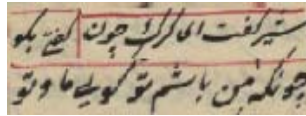 شیر گفت ای گرگ چون گفتی بگو
چونکه من باشم تو گویی ما و تو